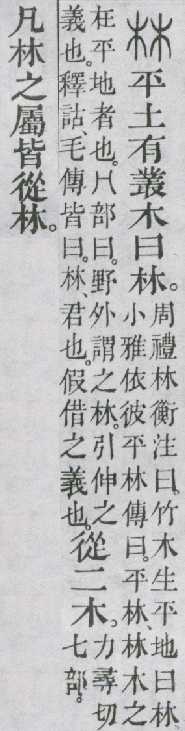 林 平土有叢木曰林。周禮林衡注曰。竹木生平地曰林
小雅依彼平林傳曰。平林、林木之
在平地者也。冂部曰。野外謂之林。引伸之
義也。釋詁、毛傳皆曰。林、君也。假借之義也。從二木。力尋切
七部。
凡林之屬皆從林。